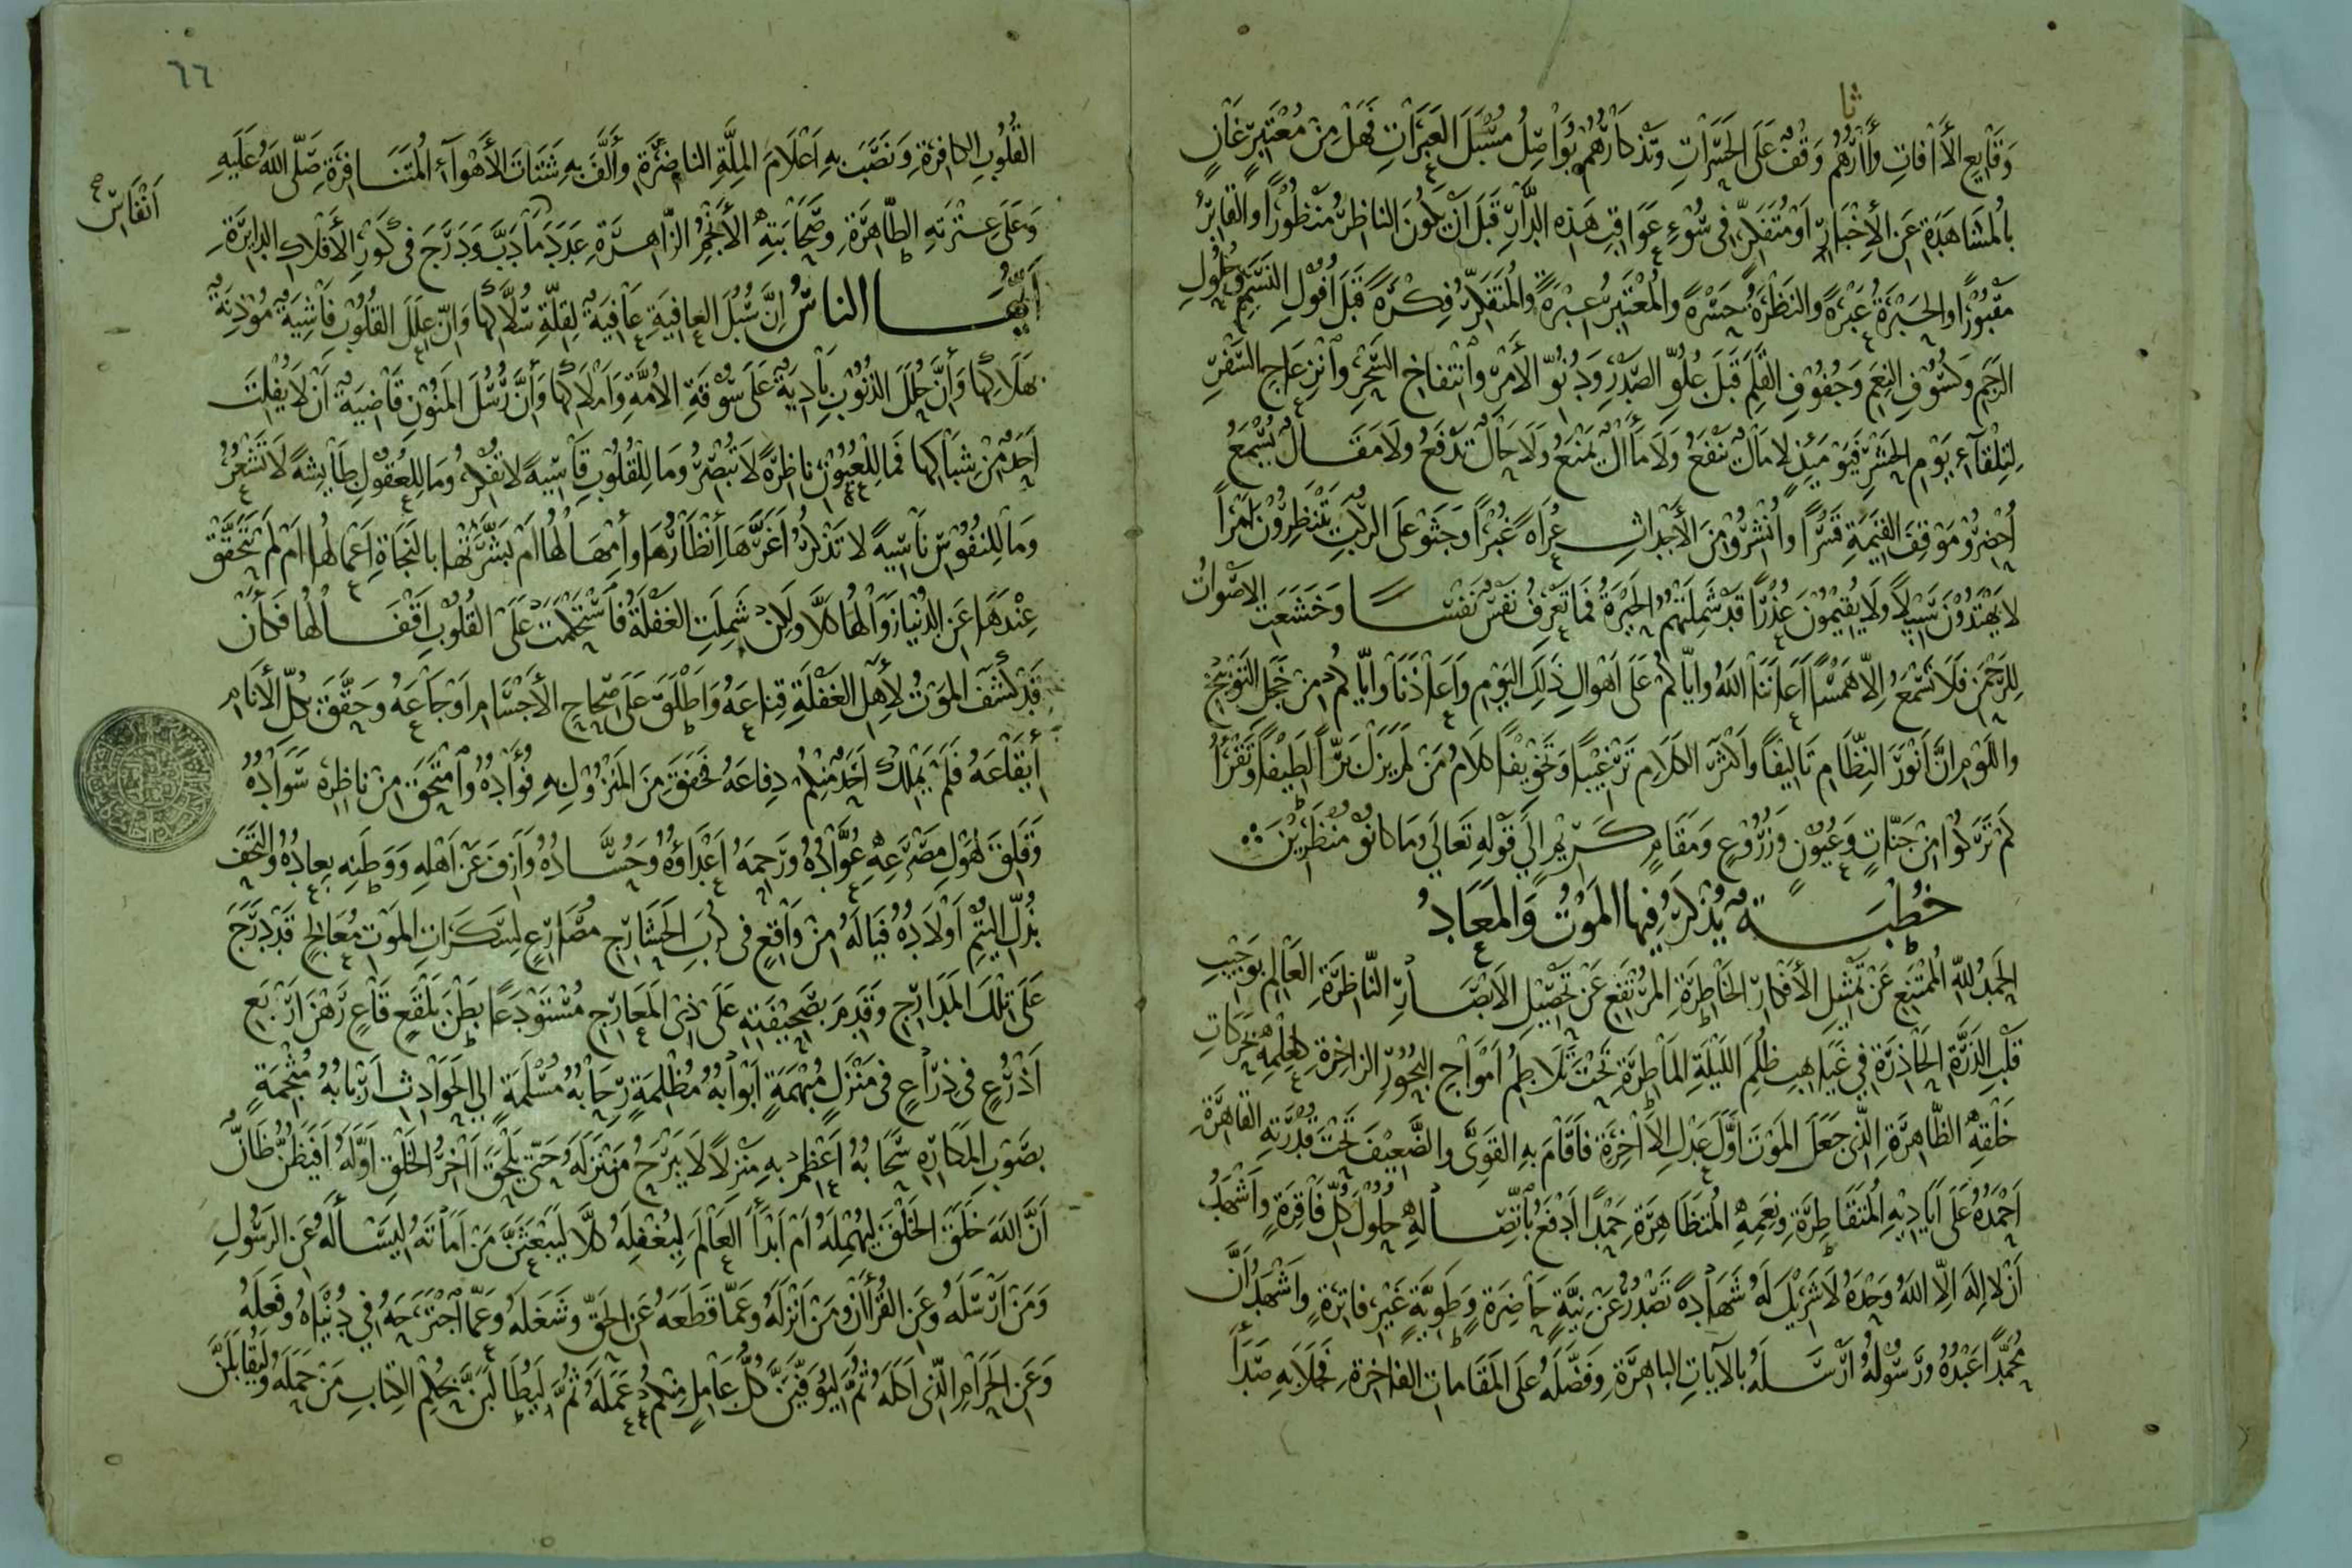 ثا
وَقَايِعِ الأَفَاتِ وَاٰثَارُهُمْ وَقْفٌ عَلَى الحَسَرَاتِ وَتَذْكَارُهُمْ يُوَاصِلُ مُسْبَلَ العَبَرَاتِ فَهَلْ مِنْ مُعْتَبِرٍ غَانٍ
بِالمُشَاهَدَةِ عَنِ الأَخْبَارِ اَوْ مُتَفَكِّرٍ فِى سُوْءِ عَوَاقِبِ هَذِهِ الدَّارِ قَبْلَ اَنْ يَكُونَ النَاظِرُ مَنْظُوْرًا وَالقَابِرُ
مَقْبُوْرًا وَالحَبْرَةُ عَبْرَةً وَالنَظْرَةُ حَسْرَةً وَالمُعْتَبِرُ عِبْرَةً وَالمُتَفَكِّرُ فِكْرَةً قَبْلَ اُفُولِ النَسَمِ وَحُلُولِ
الرَجَمِ وَكُسُوْفِ النِعَمِ وَجُفُوْفِ القَلَمِ قَبْلَ عُلُوِّ الصَدْرِ وَدُنُوِّ الأَمْرِ وَانْتِفَاخِ السَّحْرِ وَانْزِعَاجِ السَّفْرِ
لِتِلْقَآءِ يَوْمِ الحَشْرِ فَيَوْمَئِذٍ لَا مَالٌ يَنْفَعُ وَلَا مَآلٌ يَمْنَعُ وَلَا حَالٌ تَدْفَعُ وَلَا مَقَالٌ يُسْمَعُ
اُحْضِرُوْ مَوْقِفَ القِيمَةِ قَسْرًا وَاُنْشِرُوْا مِنَ الأَجْدَاثِ عُرَاةً غُبْرًا وَجَثَوْ عَلَى الرُّكَبِ يَنْتَظِرُوْنَ اَمْرًا
لَا يَهْتَدُوْنَ سَبِيْلاً وَلَا يُقِيْمُوْنَ عُذْرًا قَدْ شَمِلَتْهُمُ الحَيْرَةُ فَمَا تَعْرِفُ نَفْسٌ نَفْسًا وَخَشَعَتِ الاَصْوَاتُ
لِلرَّحْمَنِ فَلَا تَسْمَعُ اِلاَّ هَمْسًا اَعَانَنَا اللهُ وَايَّاكُمْ عَلَى اَهْوَالِ ذَلِكَ اليَوْمِ وَاَعَاذَنَا وَايَّاكُمْ مِنْ خَجَلِ التَوْبِيْخِ
وَاللَوْمِ اِنَّ اَنْوَرَ النِّظَامِ تَالِيفًا وَاَكْثَرَ الكَلَامِ تَرْغِيْبًا وَتَخْوِيْفًا كَلَامُ مَنْ لَمْ يَزَلْ بَرًّا لَطِيْفًا وَتَقْرَأُ
كَمْ تَرَكُوْا مِنْ جَنَّاتٍ وَعُيُوْنٍ وَزُرُوْعٍ وَمَقَامٍ كَرِيْمٍ اِلَى قَوْلِهِ تَعَالَى وَمَا كَانُوْ مُنْظَرِيْنَ
خُطْبَةٌ يُذْكَرُ فِيْهَا المَوْتُ وَالمَعَادُ
الحَمْدُ لِلَّهِ المُمْتَنِعِ عَنْ تَمْثِيلِ الأَفْكَارِ الخَاطِرَةِ المُرْتَفِعِ عَنْ تَحْصِيْلِ الاَبْصَارِ النَّاظِرَةِ العَالِمِ بِوَجِيْبِ
قَلْبِ الذَرَّةِ الحَاذِرَةِ فِي غَيَاهِبِ ظُلَمِ اللَيْلَةِ المَاطِرَةِ تَحْتَ تَلَاطُمِ اَمْوَاجِ البُحُوْرِ الزَاخِرَةِ كَعِلْمِهِ بِحَرَكَاتِ
خَلْقِهِ الظَّاهِرَةِ الَّذِى جَعَلَ المَوْتَ اَوَّلَ عَدْلِ الأَخِرَةِ فَاَقَامَ بِهِ القَوِيَّ وَالضَّعِيْفَ تَحْتَ قُدْرَتِهِ القَاهِرَةِ
اَحْمَدُهُ عَلَى اَيَادِيْهِ المُتَقَاطِرَةِ وَنِعَمِهِ المُتَظَاهِرَةِ حَمْدًا اَدْفَعُ بِاتِّصَالِهِ حُلُوْلَ كُلِّ فَاقِرَةٍ وَاَشْهَدُ
اَنْ لَا اِلَهَ اِلاَّ اللهُ وَحْدَهُ لَا شَرِيْكَ لَهُ شَهَادَةً تَصْدُرُ عَنْ نِيَّةٍ حَاضِرَةٍ وَطَوِيَّةٍ غَيْرِ فَاتِرَةٍ وَاَشْهَدُ اَنَّ
مُحَمَّدًا عَبْدُهُ وَرَسُوْلُهُ اَرْسَلَهُ بِالآيَاتِ البَاهِرَةِ وَفَضَّلَهُ عَلَى المَقَامَاتِ الفَاخِرَةِ فَجَلَا بِهِ صَدَأَ
٦٦
القُلُوْبِ الكَافِرَةِ وَنَصَبَ بِهِ اَعْلَامَ المِلَّةِ النَاضِرَةِ وَأَلَّفَ بِهِ شَتَاتَ الأَهْوَآءِ المُتَنَافِرَةِ صَلَّى اللهُ عَلَيْهِ
وَعَلَى عِتْرَتِهِ الطَّاهِرَةِ وَصَحَابَتِهِ الأَنْجُمِ الزَّاهِرَةِ عَدَدَ مَا دَبَّ وَدَرَجَ فِى كَوْرِ الأَفْلَاكِ الدَايِرَةِ
اَنْفَاسٌ
اَيُّهَا النَاسُ اِنَّ سُبُلَ العَافِيَةِ عَافِيَةٌ لِقِلَّةِ سُلاَّكِهَا وَاِنَّ عِلَلَ القُلُوْبِ فَاشِيَةٌ مُوْذِنَةٌ
بِهَلَاكِهَا وَأَنَّ حُلَلَ الذُنُوْبِ بَادِيَةٌ عَلَى سُوْقَةِ الاُمَّةِ وَاَمْلَاكِهَا وَأَنَّ رُسُلَ المَنُوْنِ قَاضِيَةٌ اَنْ لَا يُفْلِتَ
اَحَدٌ مِنْ شِبَاكِهَا فَمَا لِلْعُيُوْنِ نَاظِرَةً لَا تُبْصِرُ وَمَا لِلْقُلُوْبِ قَاسِيَةً لَا تُفَكِّرُ وَمَا لِلْعُقُوْلِ طَايِشَةً لَا تَشْعُرُ
وَمَا لِلنُفُوْسِ نَاسِيَةً لَا تَذْكُرُ اَغَرَّهَا اِنْظَارُهَا وَاِمْهَالُهَا اَمْ بَشَّرَتْهَا بِالنَجَاةِ اَعْمَالُهَا اَمْ لَمْ يَتَحَقَّقْ
عِنْدَهَا عَنِ الدُنْيَا زَوَالُهَا كَلاَّ وَلَكِنْ شَمِلَتِ الغَفْلَةُ فَاسْتَحْكَمَتْ عَلَى القُلُوْبِ اَقْفَالُهَا فَكَأَنْ
قَدْ كَشَفَ المَوْتُ لِأَهْلِ الغَفْلَةِ قِنَاعَهُ وَاَطْلَقَ عَلَى صِحَاحِ الأَجْسَامِ اَوْجَاعَهُ وَحَقَّقَ بِكُلِّ الأَنَامِ
اِيْقَاعَهُ فَلَمْ يَمْلِكْ اَحَدٌ مِنْكُمْ دِفَاعَهُ فَخَفَقَ مِنَ المَنْزُوْلِ بِهِ فُؤَادُهُ وَامْتَحَقَ مِنْ نَاظِرِهِ سَوَادُهُ
وَقَلِقَ لِهَوْلِ مَصْرَعِهِ عُوَّادُهُ وَرَحِمَهُ اَعْدَاؤُهُ وَحُسَّادُهُ وَاَزِفَ عَنْ اَهْلِهِ وَوَطَنِهِ بِعَادُهُ وَالتَحَفَ
بِذُلِّ اليُتْمِ اَوْلَادُهُ فَيَالَهُ مِنْ وَاقِعٍ فِى كُرَبِ الحَشَارِجِ مُصَارِعٍ لِسَكَرَاتِ المَوْتِ مُعَالِجٍ قَدْ دَرَجَ
عَلَى تِلْكَ المَدَارِجِ وَقَدِمَ بِصَحِيْفَتِهِ عَلَى ذِى المَعَارِجِ مُسْتَوْدَعًا بَطْنَ بَلْقَعٍ قَاعٍ رَهْنَ اَرْبَعِ
اَذْرُعٍ فِى ذِرَاعٍ فِى مَنْزِلٍ مُبْهَمَةٍ اَبْوَابُهُ مُظْلِمَةٍ رِحَابُهُ مُسْلَمَةٍ اِلَى الحَوَادِثِ اَرْبَابُهُ مُثْجِمَةٍ
بِصَوْبِ المَكَارِهِ سَحَابُهُ اَعْظِمْ بِهِ مَنْزِلاً لَا يَبْرَحُ مَنْ نَزَلَهُ حَتَّى يَلْحَقَ اٰخِرُ الخَلْقِ اَوَّلَهُ اَفَيَظُنُّ ظَانٌّ
اَنَّ اللهَ خَلَقَ الخَلْقَ لِيُهْمِلَهُ اَمْ اَبْدَأَ العَالَمَ لِيُغْفِلَهُ كَلاَّ لَيَبْعَثَنَّ مَنْ اَمَاتَهُ لِيَسْأَلَهُ عَنِ الرَسُوْلِ
وَمَنْ اَرْسَلَهُ وَعَنِ القُرْأٰنِ وَمَنْ اَنْزَلَهُ وَعَمَّا قَطَعَهُ عَنِ الحَقِّ وَشَغَلَهُ وَعَمَّا اجْتَرَحَهُ فِي دُنْيَاهُ وَفَعَلَهُ
وَعَنِ الحَرَامِ الَّذِى اَكَلَهُ ثُمَّ لَيُوَفِّيَنَّ كُلَّ عَامِلٍ مِنْكُمْ عَمَلَهُ ثُمَّ لَيُطَالِبَنَّ بِحُكْمِ الكِتَابِ مَنْ حَمَلَهُ وَلَيُقَابِلَنَّ